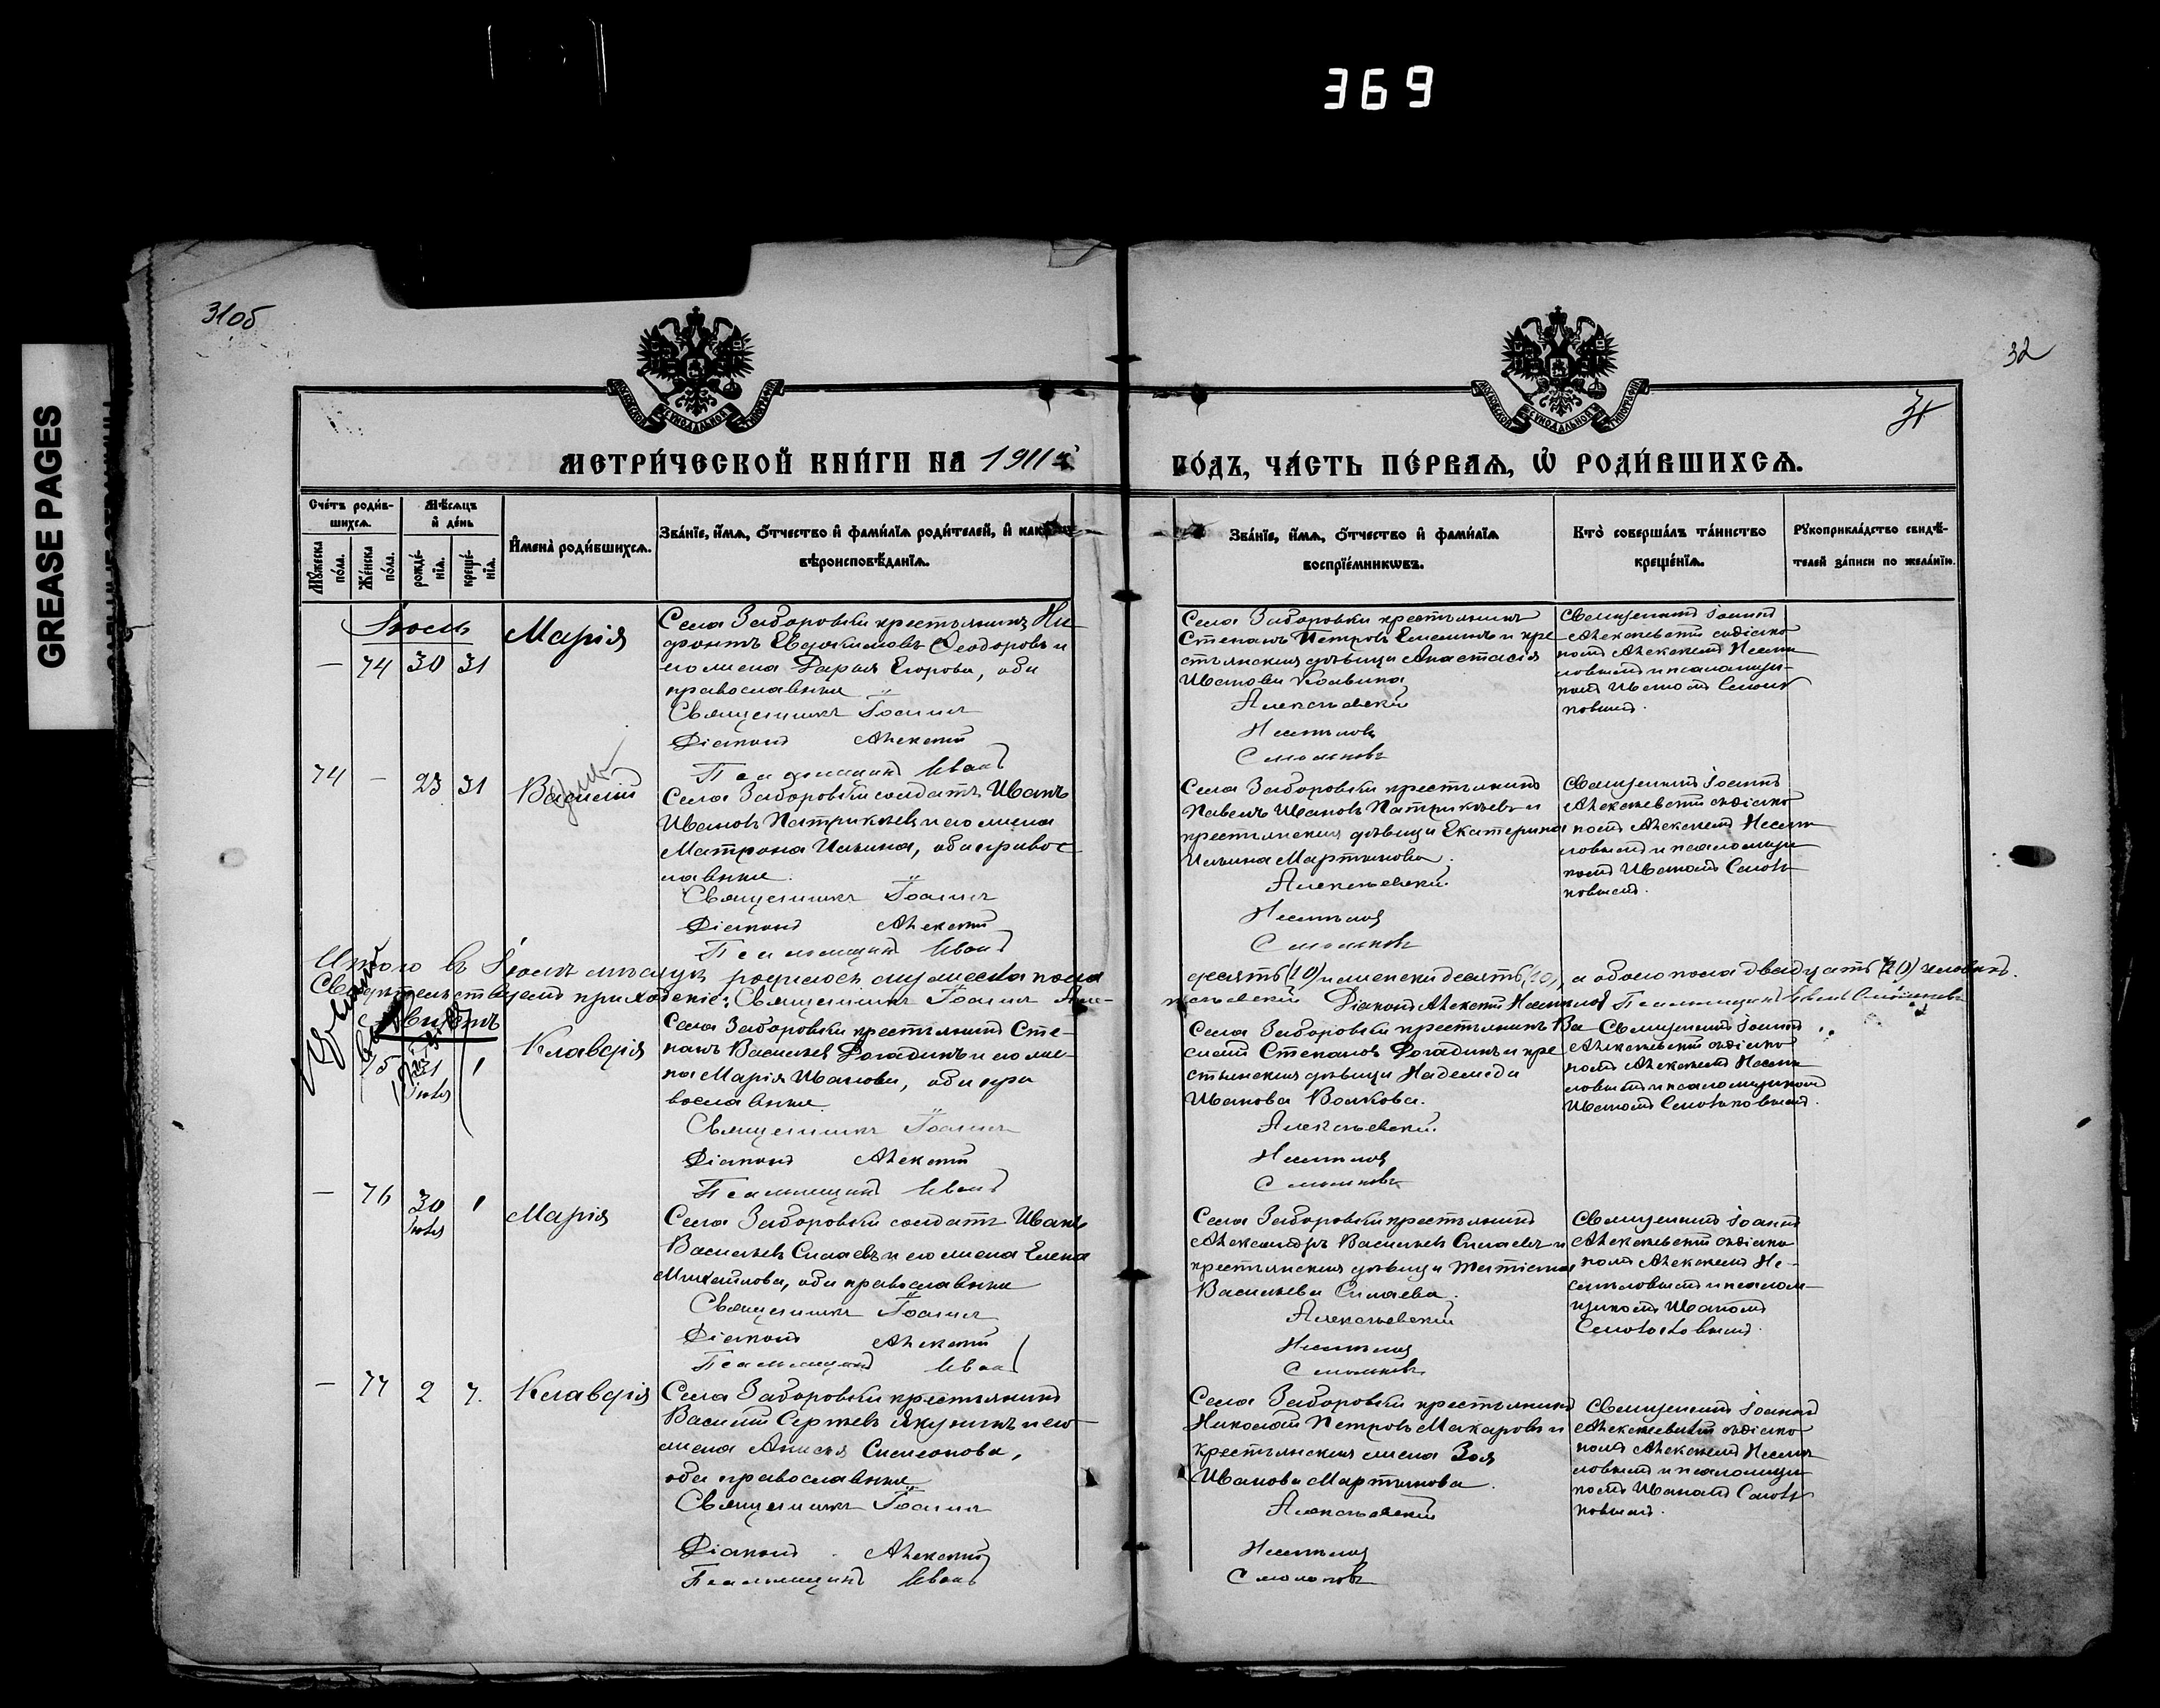 369
GREASE PAGES
31об
32
31
МЕТРИ́ЧЕСКОЙ КНИ́ГИ НА 1911 й
ГО́ДЪ, ЧА́СТЬ ПЕ́РВАѦ, Ѡ҆ РОДИ́ВШИХСѦ.
Сче́тъ роди́в-
шихсѧ.
Мꙋ́жеска по́ла.
Же́нска по́ла.
Мѣ́сѧцъ
и҆ де́нь
рожде́нїѧ.
креще́нїѧ.
И҆мена̀ роди́вшихсѧ.
Зва́нїе, и҆́мѧ, ѻ҆́тчество и҆ фами́лїѧ роди́телей, и҆ како́гѡ
вѣроисповѣ́данїѧ.
Зва́нїе, и҆́мѧ, ѻ҆́тчество и҆ фами́лїѧ
воспрїе́мникѡвъ.
Кто̀ соверша́лъ та́инство
креще́нїѧ.
Рꙋкоприкла́дство свидѣ́-
телей за́писи по жела́нїю.
Іюль
— 74 30 31 Марія
Села Заборовки крестьянинъ Ни-
фонтъ Евдокимовъ Ѳеодоровъ и
его жена Дарья Егорова, оба
православные
Священникъ Іоаннъ
Діаконъ Алексій
Псаломщикъ Иванъ
Села Заборовки крестьянинъ
Степанъ Петровъ и кре-
стьянская дѣвица Анастасія
Иванова
Алексѣевскій
Смольковъ
Священникъ Іоаннъ
Алексѣевскій съ діако-
номъ Алексѣемъ
и псаломщи-
комъ Иваномъ Смоль-
ковымъ.
74 — 23 31 Василій
Села Заборовки солдатъ Иванъ
Ивановъ Патрикѣевъ и его жена
Матрона Ильина, оба правос-
лавные.
Священникъ Іоаннъ
Діаконъ Алексій
Псаломщикъ Иванъ
Села Заборовки крестьянинъ
Павелъ Ивановъ Патрикѣевъ и
крестьянская дѣвица Екатерина
Ильина Мартынова.
Алексѣевскій
Смольковъ
Священникъ Іоаннъ
Алексѣевскій съ діако-
номъ Алексѣемъ
и псаломщи-
комъ Иваномъ Смоль-
ковымъ.
Итого въ Іюлѣ мѣсяцѣ родилось мужеска пола
десять (10) и женска десять (10), а обоего пола двадцать (20) человѣкъ.
Свидѣтельствуемъ приходскіе: Священникъ Іоаннъ Алек-
сѣевскій Діаконъ Алексій Псаломщикъ Иванъ Смольковъ
Августъ
75 31 Іюля 1 Клавдія
Села Заборовки крестьянинъ Сте-
панъ Васильевъ Рогадинъ и его же-
на Марія Иванова, оба пра
вославные.
Священникъ Іоаннъ
Діаконъ Алексій
Псаломщикъ Иванъ
Села Заборовки крестьянинъ Ва-
силій Степановъ Рогадинъ и кре-
стьянская дѣвица Надежда
Иванова Волкова.
Алексѣевскій
Смольковъ
Священникъ Іоаннъ
Алексѣевскій съ діако-
номъ Алексѣемъ
и псаломщикомъ
Иваномъ Смольковымъ.
— 76 30 Іюля 1 Марія
Села Заборовки солдатъ Иванъ
Васильевъ Силаевъ и его жена Елена
Михайлова, оба православные
Священникъ Іоаннъ
Діаконъ Алексій
Псаломщикъ Иванъ
Села Заборовки крестьянинъ
Александръ Васильевъ Силаевъ и
крестьянская дѣвица Татіана
Васильева Силаева.
Алексѣевскій
Смольковъ
Священникъ Іоаннъ
Алексѣевскій съ діако-
номъ Алексѣемъ
и псалом-
щикомъ Иваномъ
Смольковымъ.
— 77 2 7. Клавдія
Села Заборовки крестьянинъ
Василій Сергѣевъ Якунинъ и его
жена Анисья Симеонова,
оба православные
Священникъ Іоаннъ
Діаконъ Алексій
Псаломщикъ Иванъ
Села Заборовки крестьянинъ
Николай Петровъ Макаровъ и
крестьянская жена Зоя
Иванова Мартынова.
Алексѣевскій
Смольковъ
Священникъ Іоаннъ
Алексѣевскій съ діако-
номъ Алексѣемъ
и псаломщи-
комъ Иваномъ Смоль-
ковымъ.